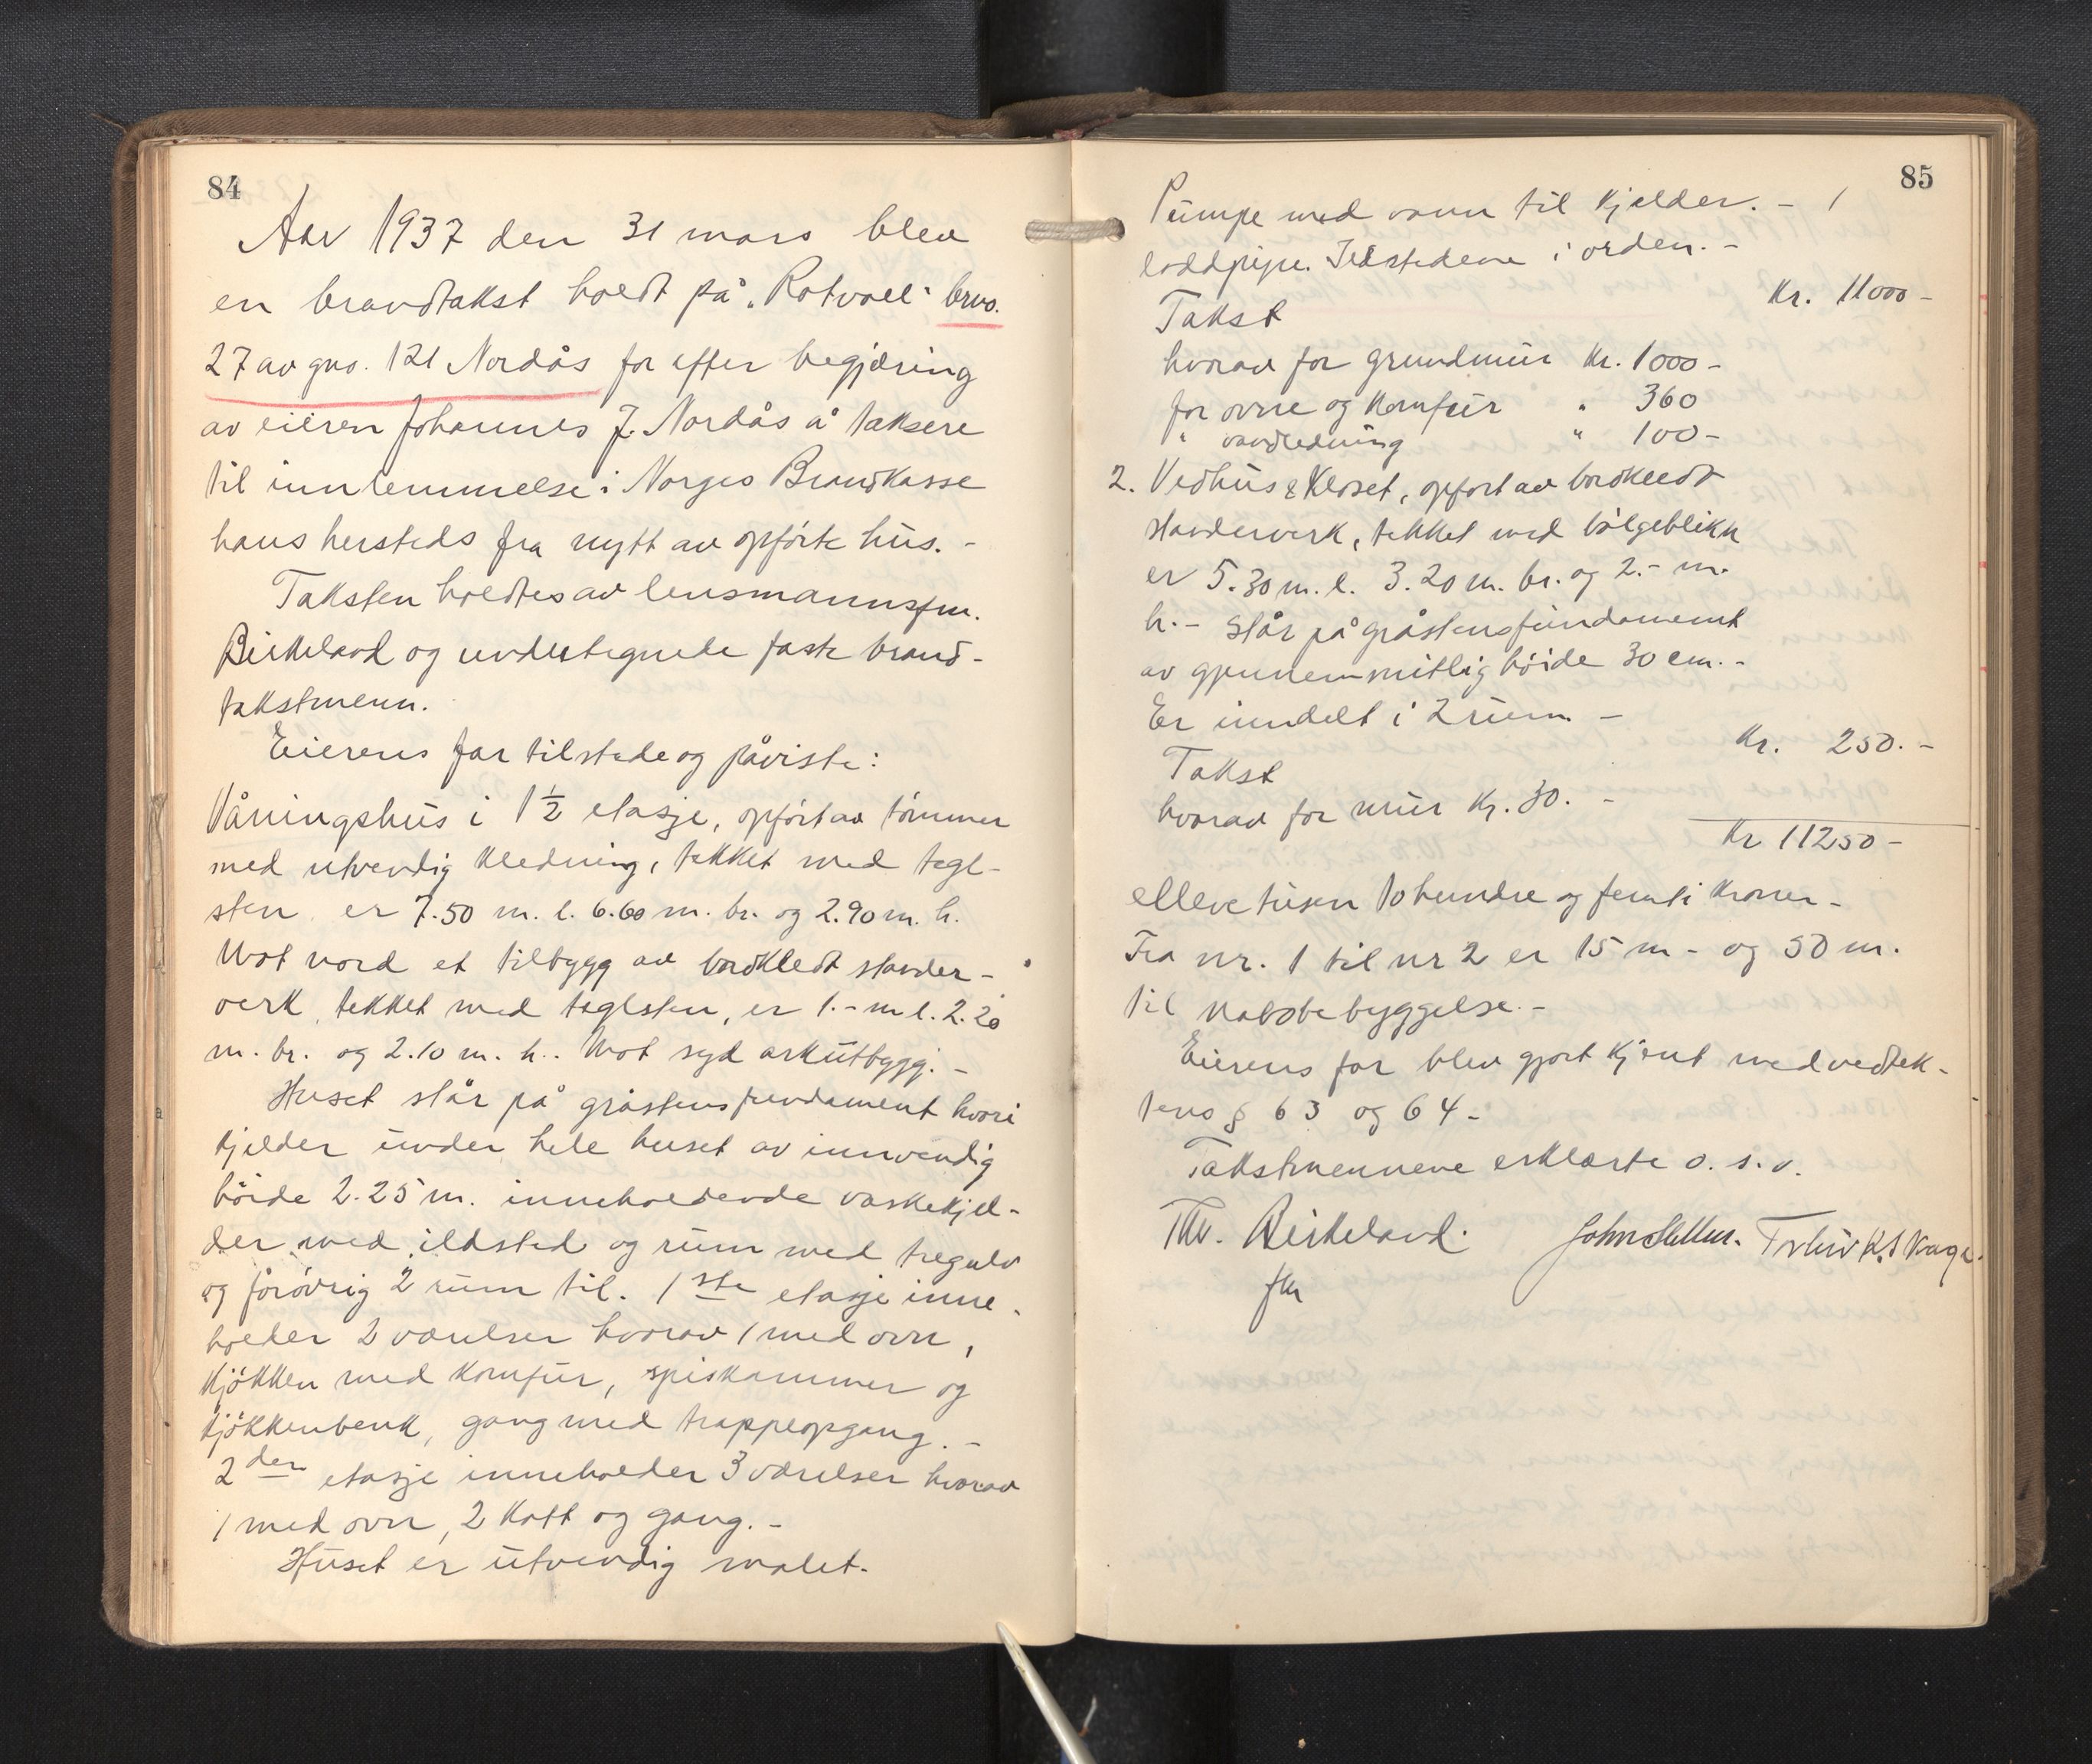 84
Aar 1937 den 31 mars blev
en brandtakst holdt på "Rotvoll" brno.
27 av gno. 121 Nordås for efter begjæring
av eieren Johannes J. Nordås å taksere
til innlemmelse i Norges Brandkasse
hans hersteds fra nytt av opførte hus. -
Taksten holdtes av lensmannsfm.
Birkeland og undertegnede faste brand-
takstmenn.
Eierens far tilstede og påviste:
Våningshus i 1 1/2 etasje, opført av tømmer
med utvendig kledning, tekket med tegl-
sten er 7.50 m. l. 6.60 m. br. og 2.90 m. h.
Mot nord et tilbygg av bordkledt stander-
verk, tekket med teglsten, er 1.- m l. 2.20
m. br. og 2.10 m. h.. Mot syd arkutbygg. -
Huset står på gråstensfundament hvori
kjelder under hele huset av innvendig
höide 2.25 m. inneholdende vaskekjel-
der med ildsted og rum med tregulv
og forøvrig 2 rum til. 1ste etasje inne-
holder 2 værelser hvorav 1 med ovn,
kjökken med komfur, spiskammer og
kjökkenbenk, gang med trappeopgang. -
2den etasje inneholder 3 værelser hvorav
1 med ovn, 2 kott og gang. -
Huset er utvendig malet.
85
Pumpe med vann til kjelder. - 1
loddpipe. Ildstedene i orden. -
Takst Kr. 11000 -
hvorav for grundmur Kr. 1000 -
for ovne og komfur " 360
" vandledning " 100 -
2. Vedhus & Kloset, opført av bordkledt
standerverk, tekket med bølgeblikk
er 5.30 m. l. 3.20 m. br. og 2.- m.
h. - Står på gråstensfundament
av gjennemsnitlig höide 30 cm. -
Er inndelt i 2 rum -
Takst Kr. 250. -
hvorav for mur Kr. 30. -
Kr 11250 -
elleve tusen to hundre og femti kroner -
Fra nr. 1 til nr 2 er 15 m - og 50 m.
til nabobebyggelse. -
Eierens far blev gjort kjent med vedtek-
tens § 63 og 64 -
Takstmennene erklærte o. s. v.
Thv. Birkeland. John
fm